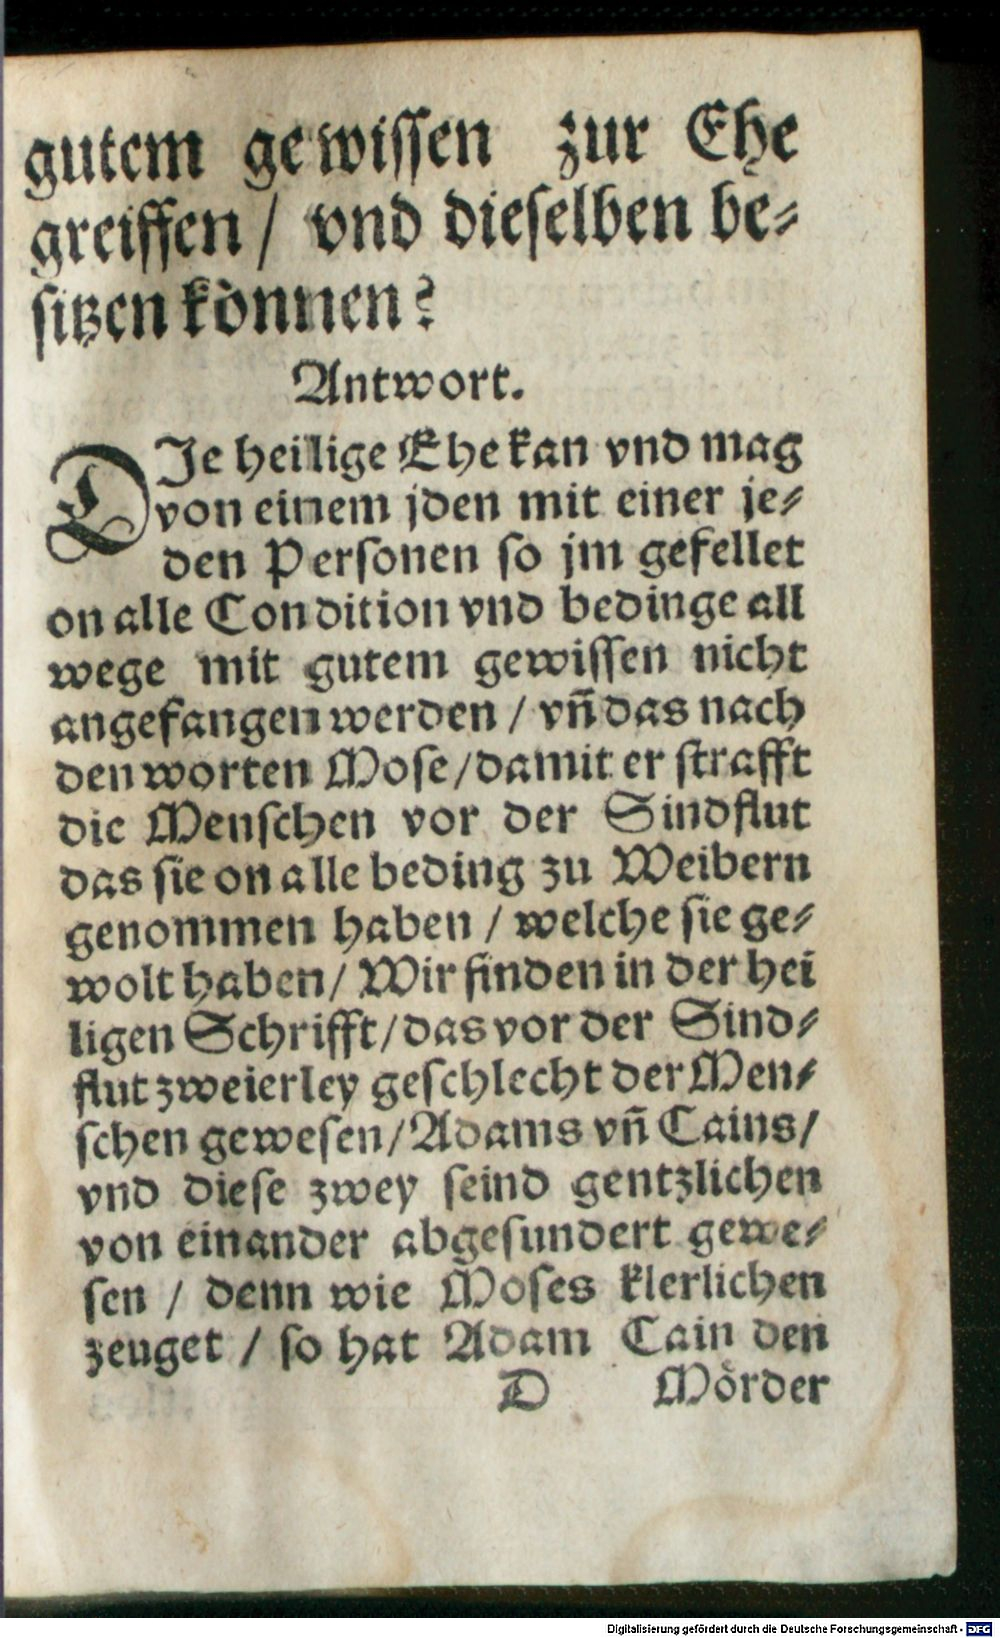 gutem gewissen zur Ehe
greiffen / vnd dieselben be-
sitzen können?
Antwort.
DIe heilige Ehe kan vnd mag
von einem jden mit einer je-
den Personen so jm gefellet
on alle Condition vnd bedinge all
wege mit gutem gewissen nicht
angefangen werden / vn̄ das nach
den worten Mose / damit er strafft
die Menschen vor der Sindflut
das sie on alle beding zu Weibern
genommen haben / welche sie ge-
wolt haben / Wir finden in der hei
ligen Schrifft / das vor der Sind-
flut zweierley geschlecht der Men-
schen gewesen / Adams vn̄ Cains /
vnd diese zwey seind gentzlichen
von einander abgesundert gewe-
sen / denn wie Moses klerlichen
zeuget / so hat Adam Cain den
D Mörder
Digitalisierung gefördert durch die Deutsche Forschungsgemeinschaft - DFG